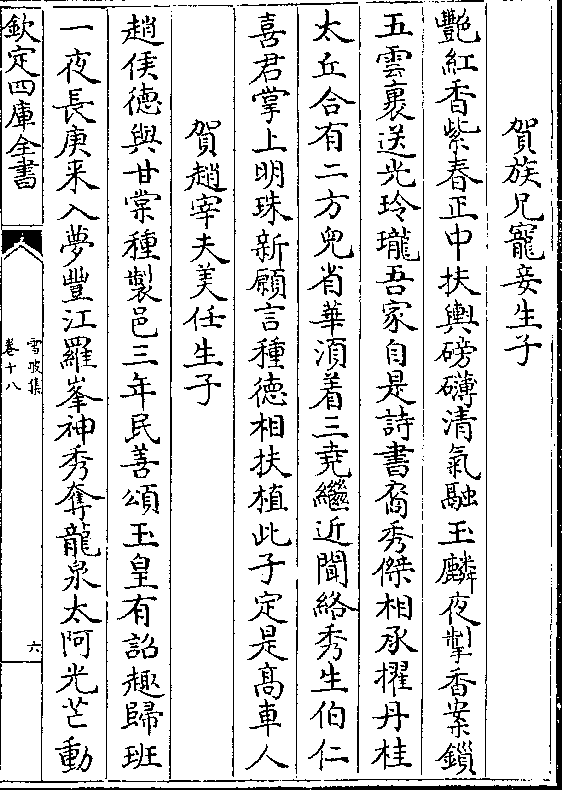 賀族兄寵妾生子
艷紅香紫春正中扶輿磅礴清氣融玉麟夜掣香案鎖
五雲裹送光玲瓏吾家自是詩書裔秀傑相承擢丹桂
太丘合有二方兒省華湏着三堯繼近聞絡秀生伯仁
喜君掌上明珠新願言種德相扶植此子定是髙車人
賀趙宰夫美任生子
趙侯德與甘棠種製邑三年民善頌玉皇有詔趣歸班
一夜長庚来入夢豐江羅峯神秀奪龍泉太阿光芒動
欽定四庫全書
雪坡集
卷十八
六